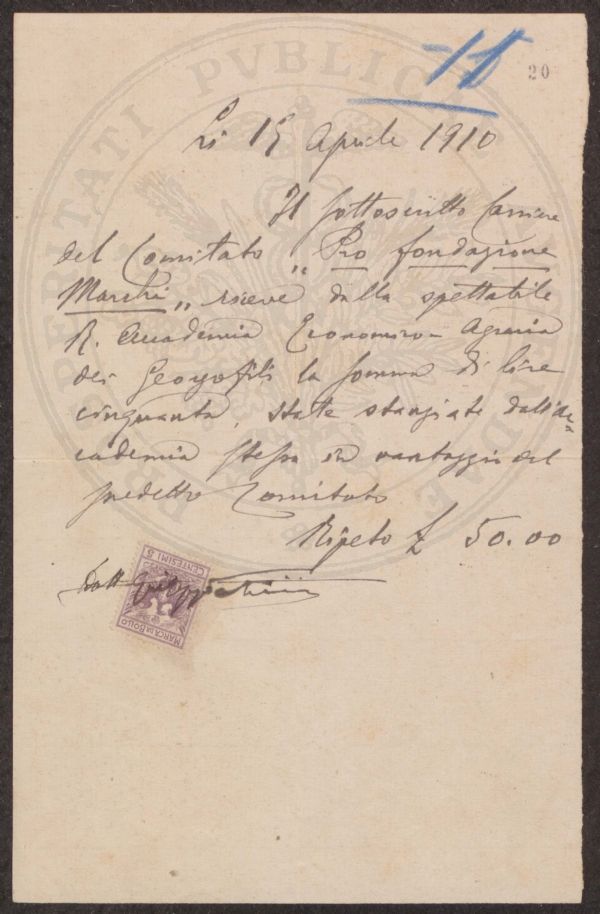 -15
20
Lì 15 Aprile 1910
Il sottoscritto Cassiere
del Comitato „ Pro fondazione
Marchi „ riceve dalla spettabile
R. Accademia Economico-Agraria
dei Georgofili la somma di lire
cinquanta, state stanziate dall'Ac=
cademia stessa in vantaggio del
predetto Comitato
Ripeto £ 50.00
Dott
MARCA DA BOLLO
CENTESIMI 5
PROSPERITATI PVBLICAE AVGENDAE